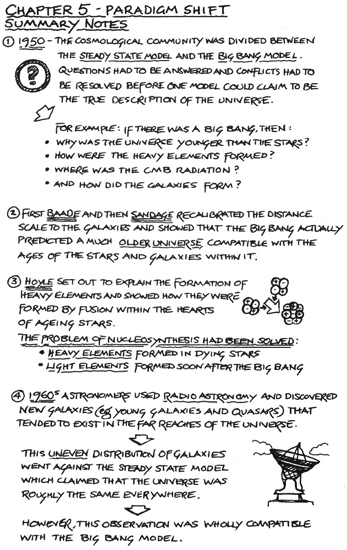 CHAPTER 5 - PARADIGM SHIFT
SUMMARY NOTES
① 1950 - THE COSMOLOGICAL COMMUNITY WAS DIVIDED BETWEEN
THE STEADY STATE MODEL AND THE BIG BANG MODEL.
? QUESTIONS HAD TO BE ANSWERED AND CONFLICTS HAD TO
BE RESOLVED BEFORE ONE MODEL COULD CLAIM TO BE
THE TRUE DESCRIPTION OF THE UNIVERSE.
FOR EXAMPLE: IF THERE WAS A BIG BANG, THEN:
• WHY WAS THE UNIVERSE YOUNGER THAN THE STARS?
• HOW WERE THE HEAVY ELEMENTS FORMED?
• WHERE WAS THE CMB RADIATION?
• AND HOW DID THE GALAXIES FORM?
② FIRST BAADE AND THEN SANDAGE RECALIBRATED THE DISTANCE
SCALE TO THE GALAXIES AND SHOWED THAT THE BIG BANG ACTUALLY
PREDICTED A MUCH OLDER UNIVERSE COMPATIBLE WITH THE
AGES OF THE STARS AND GALAXIES WITHIN IT.
③ HOYLE SET OUT TO EXPLAIN THE FORMATION OF
HEAVY ELEMENTS AND SHOWED HOW THEY WERE
FORMED BY FUSION WITHIN THE HEARTS
OF AGEING STARS.
THE PROBLEM OF NUCLEOSYNTHESIS HAD BEEN SOLVED:
• HEAVY ELEMENTS FORMED IN DYING STARS
• LIGHT ELEMENTS FORMED SOON AFTER THE BIG BANG
④ 1960s ASTRONOMERS USED RADIO ASTRONOMY AND DISCOVERED
NEW GALAXIES (eg YOUNG GALAXIES AND QUASARS) THAT
TENDED TO EXIST IN THE FAR REACHES OF THE UNIVERSE.
THIS UNEVEN DISTRIBUTION OF GALAXIES
WENT AGAINST THE STEADY STATE MODEL
WHICH CLAIMED THAT THE UNIVERSE WAS
ROUGHLY THE SAME EVERYWHERE.
HOWEVER, THIS OBSERVATION WAS WHOLLY COMPATIBLE
WITH THE BIG BANG MODEL.